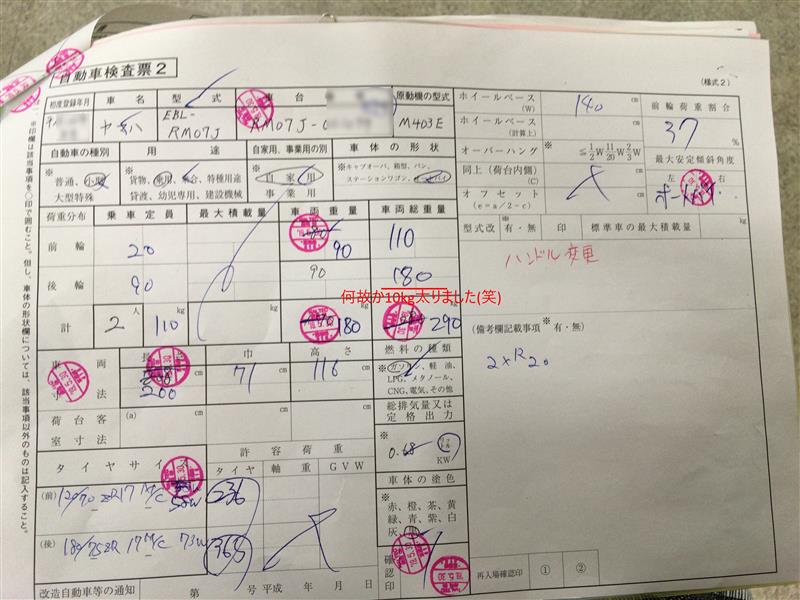 自動車検査票2
(様式2)
初度登録年月 車名 型式 車台 原動機の型式
ヤマハ EBL-RM07J RM07J-0 M403E
ホイールベース(W) 140 cm
ホイールベース(計算上) cm
オーバーハング ※ ≦1/2W 11/20W 2/3W
同上(荷台内側)(C) cm
オフセット(e=a/2-c) cm
前輪荷重割合
37 %
最大安定傾斜角度
左 右
自動車の種別 用途 自家用、事業用の別 車体の形状
※普通、小型 大型特殊
※貨物、乗用、乗合、特種用途 貸渡、幼児専用、建設機械
※自家用 事業用
※キャブオーバ、箱型、バン、ステーションワゴン、オートバイ
型式改 ※有・無 印 標準車の最大積載量 kg
ハンドル変更
荷重分布 乗車定員 最大積載量 車両重量 車両総重量
前輪 20 90 110
後輪 90 90 180
何故か10kg太りました(笑)
計 2人 110 kg kg 180 kg 290 kg
(備考欄記載事項 ※有・無)
2×R20
車両寸法 長さ 200 cm 巾 71 cm 高さ 116 cm
燃料の種類
※ガソリン、軽油、LPG、メタノール、CNG、電気、その他
荷台客室寸法 (a) cm cm cm
総排気量又は定格出力
※ 0.68 リットル KW
タイヤサイズ 許容荷重
タイヤ 軸重 GVW
(前) 120/70ZR17 M/C 58W 236
(後) 180/55ZR17 M/C 73W 365
車体の塗色
※赤、橙、茶、黄 緑、青、紫、白 灰、黒
確認印
再入場確認印 ① ②
改造自動車等の通知 第 号 平成 年 月 日
※印欄は該当事項を○印で囲むこと。但し、車体の形状欄については、該当事項以外のものは記入すること。